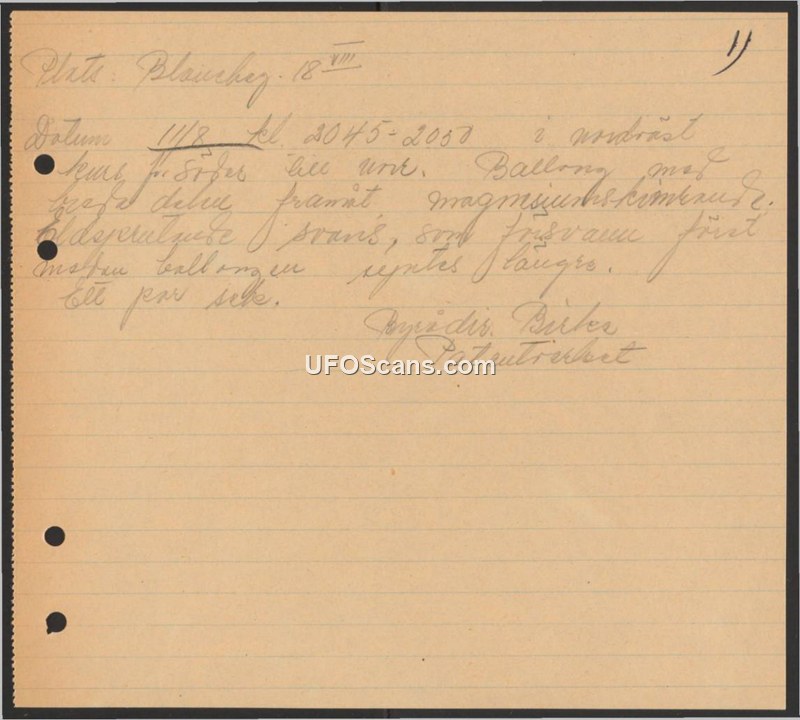 11)
Plats: 18 VIII
Datum 11/8 kl. 2045-2050 i nordväst
kurs fr. söder till norr. Ballong med
breda delen framåt magnesiumskimrande,
eldsprutande svans, som försvann först
medan ballongen syntes längre.
Ett par sek.
Byrådir.
Patentverket
UFOScans.com